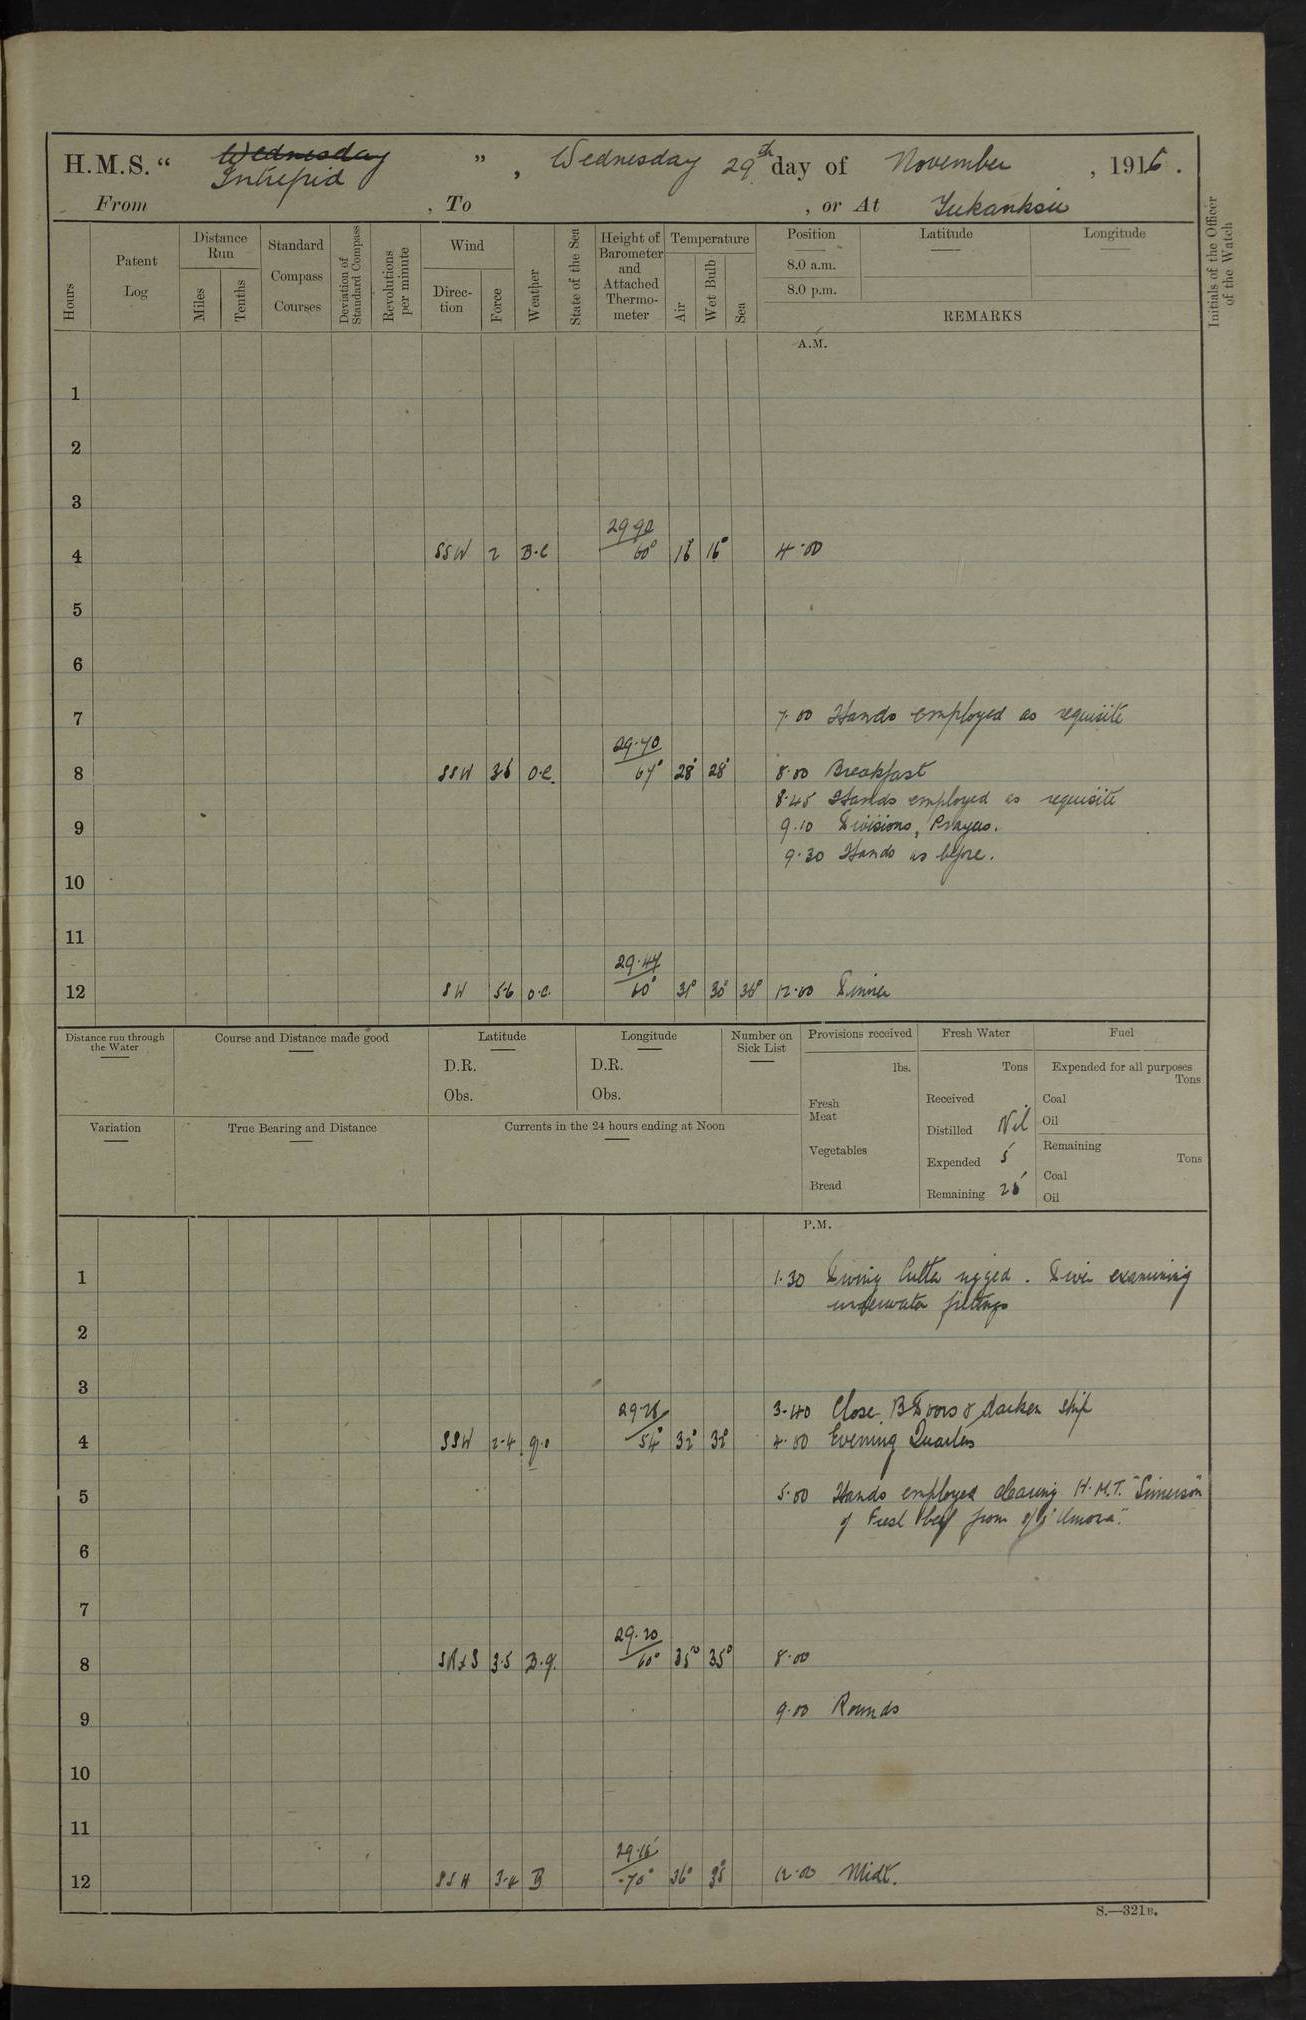 H.M.S. “ Wednesday ” , Wednesday 29th day of November , 1916 .
Intrepid
From , To , or At Yukanksie
Hours
Patent Log
Distance Run
Miles
Tenths
Standard Compass Courses
Deviation of Standard Compass
Revolutions per minute
Wind
Direction
Force
Weather
State of the Sea
Height of Barometer and Attached Thermometer
Temperature
Air
Wet Bulb
Sea
Position
8.0 a.m.
8.0 p.m.
Latitude
Longitude
REMARKS
Initials of the Officer of the Watch
A.M.
1
2
3
29.90
4 SSW 2 B.C 60° 16° 16° 4.00
5
6
7 7.00 Hands employed as requisite
29.70
8 SSW 3.5 O.C. 64° 28° 28° 8.00 Breakfast
8.45 Hands employed as requisite
9 9.10 Divisions, Prayers.
9.30 Hands as before.
10
11
29.44
12 SW 5.6 O.C. 60° 31° 30° 36° 12.00 Dinner
Distance run through the Water
Course and Distance made good
Latitude
D.R.
Obs.
Longitude
D.R.
Obs.
Number on Sick List
Provisions received
lbs.
Fresh Meat
Vegetables
Bread
Fresh Water
Tons
Received
Distilled Nil
Expended 5
Remaining 25
Fuel
Expended for all purposes
Tons
Coal
Oil
Remaining
Tons
Coal
Oil
Variation
True Bearing and Distance
Currents in the 24 hours ending at Noon
P.M.
1 1.30 Diving Cutter rigged. Diver examining
underwater fittings
2
3
29.28 3.40 Close B Doors & darken ship
4 SSW 2-4 g.o 54° 32° 32° 4.00 Evening Quarters
5 5.00 Hands employed clearing H.M.T.
of Fresh beef from
6
7
29.20
8 SWxS 3.5 B.q. 60° 35° 35° 8.00
9 9.00 Rounds
10
11
29.16
12 3-4 B 70° 36° 35° 12.00 Midt.
S.—321B.